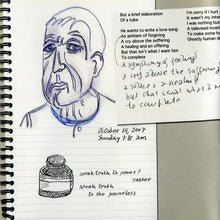 But a brief elaboration
Of a tube
He wants to write a love song
An anthem of forgiving
A cry above the suffering
A healing and an offering
But that isn't what I want him
To complete
I'm sorry if I hurt
It wasn't my inte
I was nothing bu
A (elevated invo
To make some fo
Ghostly human d
a symphony of feeling
a cry above the suffering
a healing
but that isn't what I need
to complete
October 14, 2007
Sunday 7:18 am
speak truth to power?
rather
speak truth
to the powerless